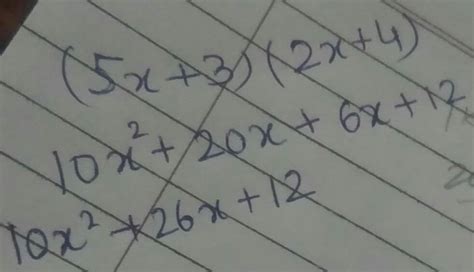 (5x+3)(2x+4)
10x² + 20x + 6x + 12
10x² + 26x + 12